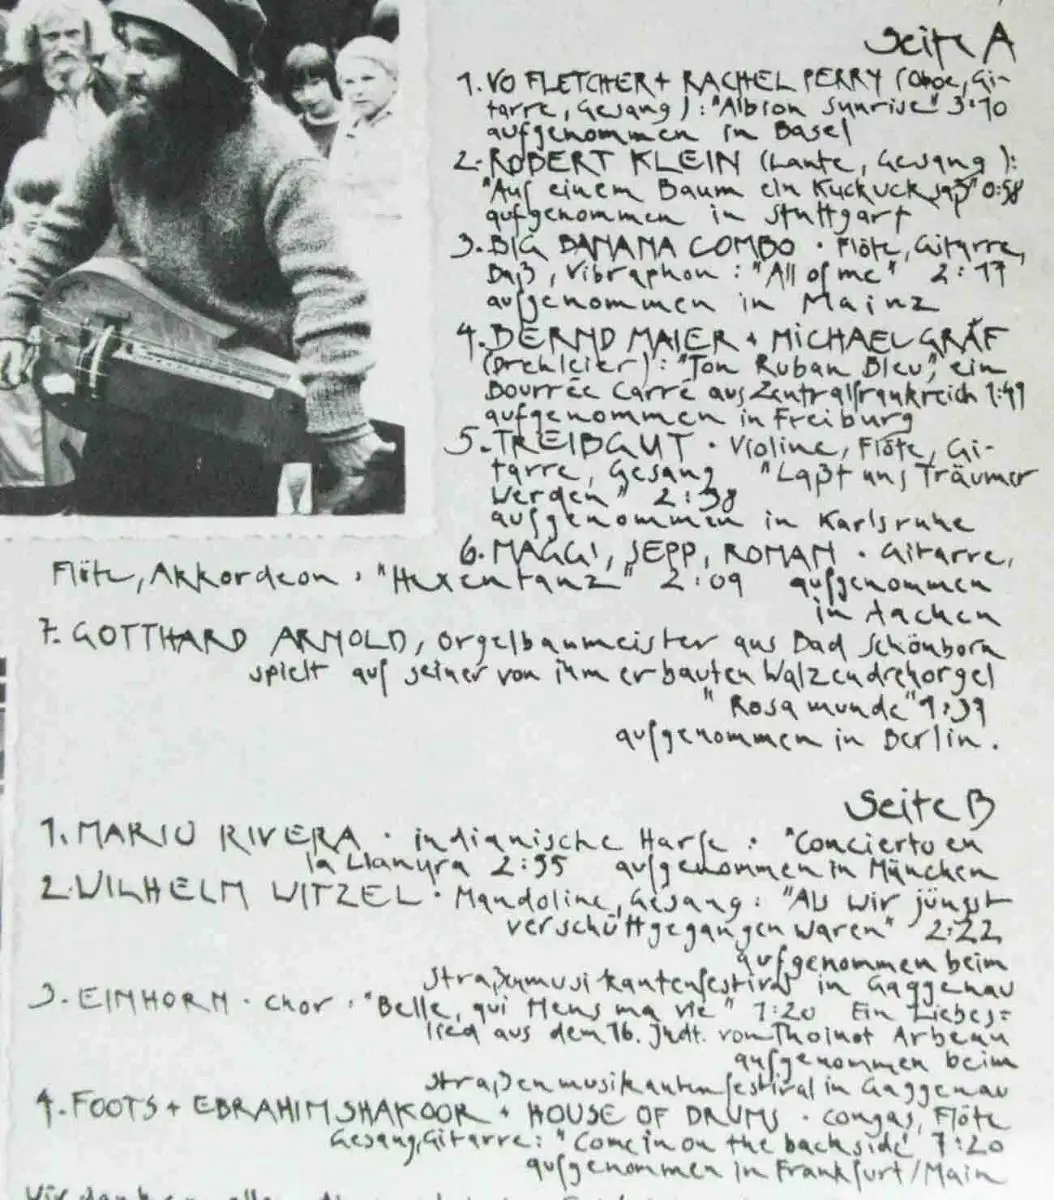 Seite A
1. VO FLETCHER + RACHEL PERRY (Oboe, Gi-
tarre, Gesang): "Albion Sunrise" 3:10
aufgenommen in Basel
2. ROBERT KLEIN (Laute, Gesang):
"Auf einem Baum ein Kuckuck saß" 0:58
aufgenommen in Stuttgart
3. BIG BANANA COMBO · Flöte, Gitarre,
Baß, Vibraphon: "All of me" 2:17
aufgenommen in Mainz
4. BERND MAIER + MICHAEL GRÄF
(Drehleier): "Ton Ruban Bleu", ein
Bourrée Carré aus Zentralfrankreich 1:41
aufgenommen in Freiburg
5. TREIBGUT · Violine, Flöte, Gi-
tarre, Gesang "Laßt uns Träumer
werden" 2:38
aufgenommen in Karlsruhe
6. MAGGI, SEPP, ROMAN · Gitarre,
Flöte, Akkordeon: "Hexentanz" 2:09 aufgenommen
in Aachen
7. GOTTHARD ARNOLD, Orgelbaumeister aus Bad Schönborn
spielt auf seiner von ihm erbauten Walzendrehorgel
"Rosamunde" 1:39
aufgenommen in Berlin.
Seite B
1. MARIO RIVERA · indianische Harfe: "Concierto en
la Llanura 2:55 aufgenommen in München
2. WILHELM WITZEL · Mandoline, Gesang: "Als wir jüngst
verschüttgegangen waren" 2:22
aufgenommen beim
Straßenmusikantenfestival in Gaggenau
3. EINHORN · Chor: "Belle, qui tiens ma vie" 1:20 Ein Liebes=
lied aus dem 16. Jhdt. von Thoinot Arbeau
aufgenommen beim
Straßenmusikantenfestival in Gaggenau
4. FOOTS + EBRAHIM SHAKOOR + HOUSE OF DRUMS · Congas, Flöte
Gesang, Gitarre: "Come in on the backside" 7:20
aufgenommen in Frankfurt/Main
Wir danken allen